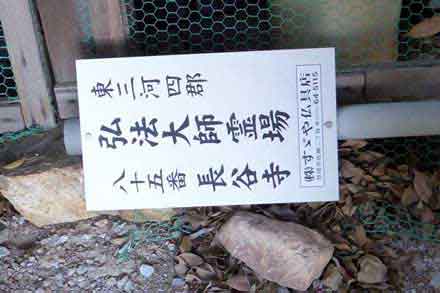 東三河四郡
弘法大師霊場
八十五番 長谷寺
(株)すゞや仏具店
64-5115